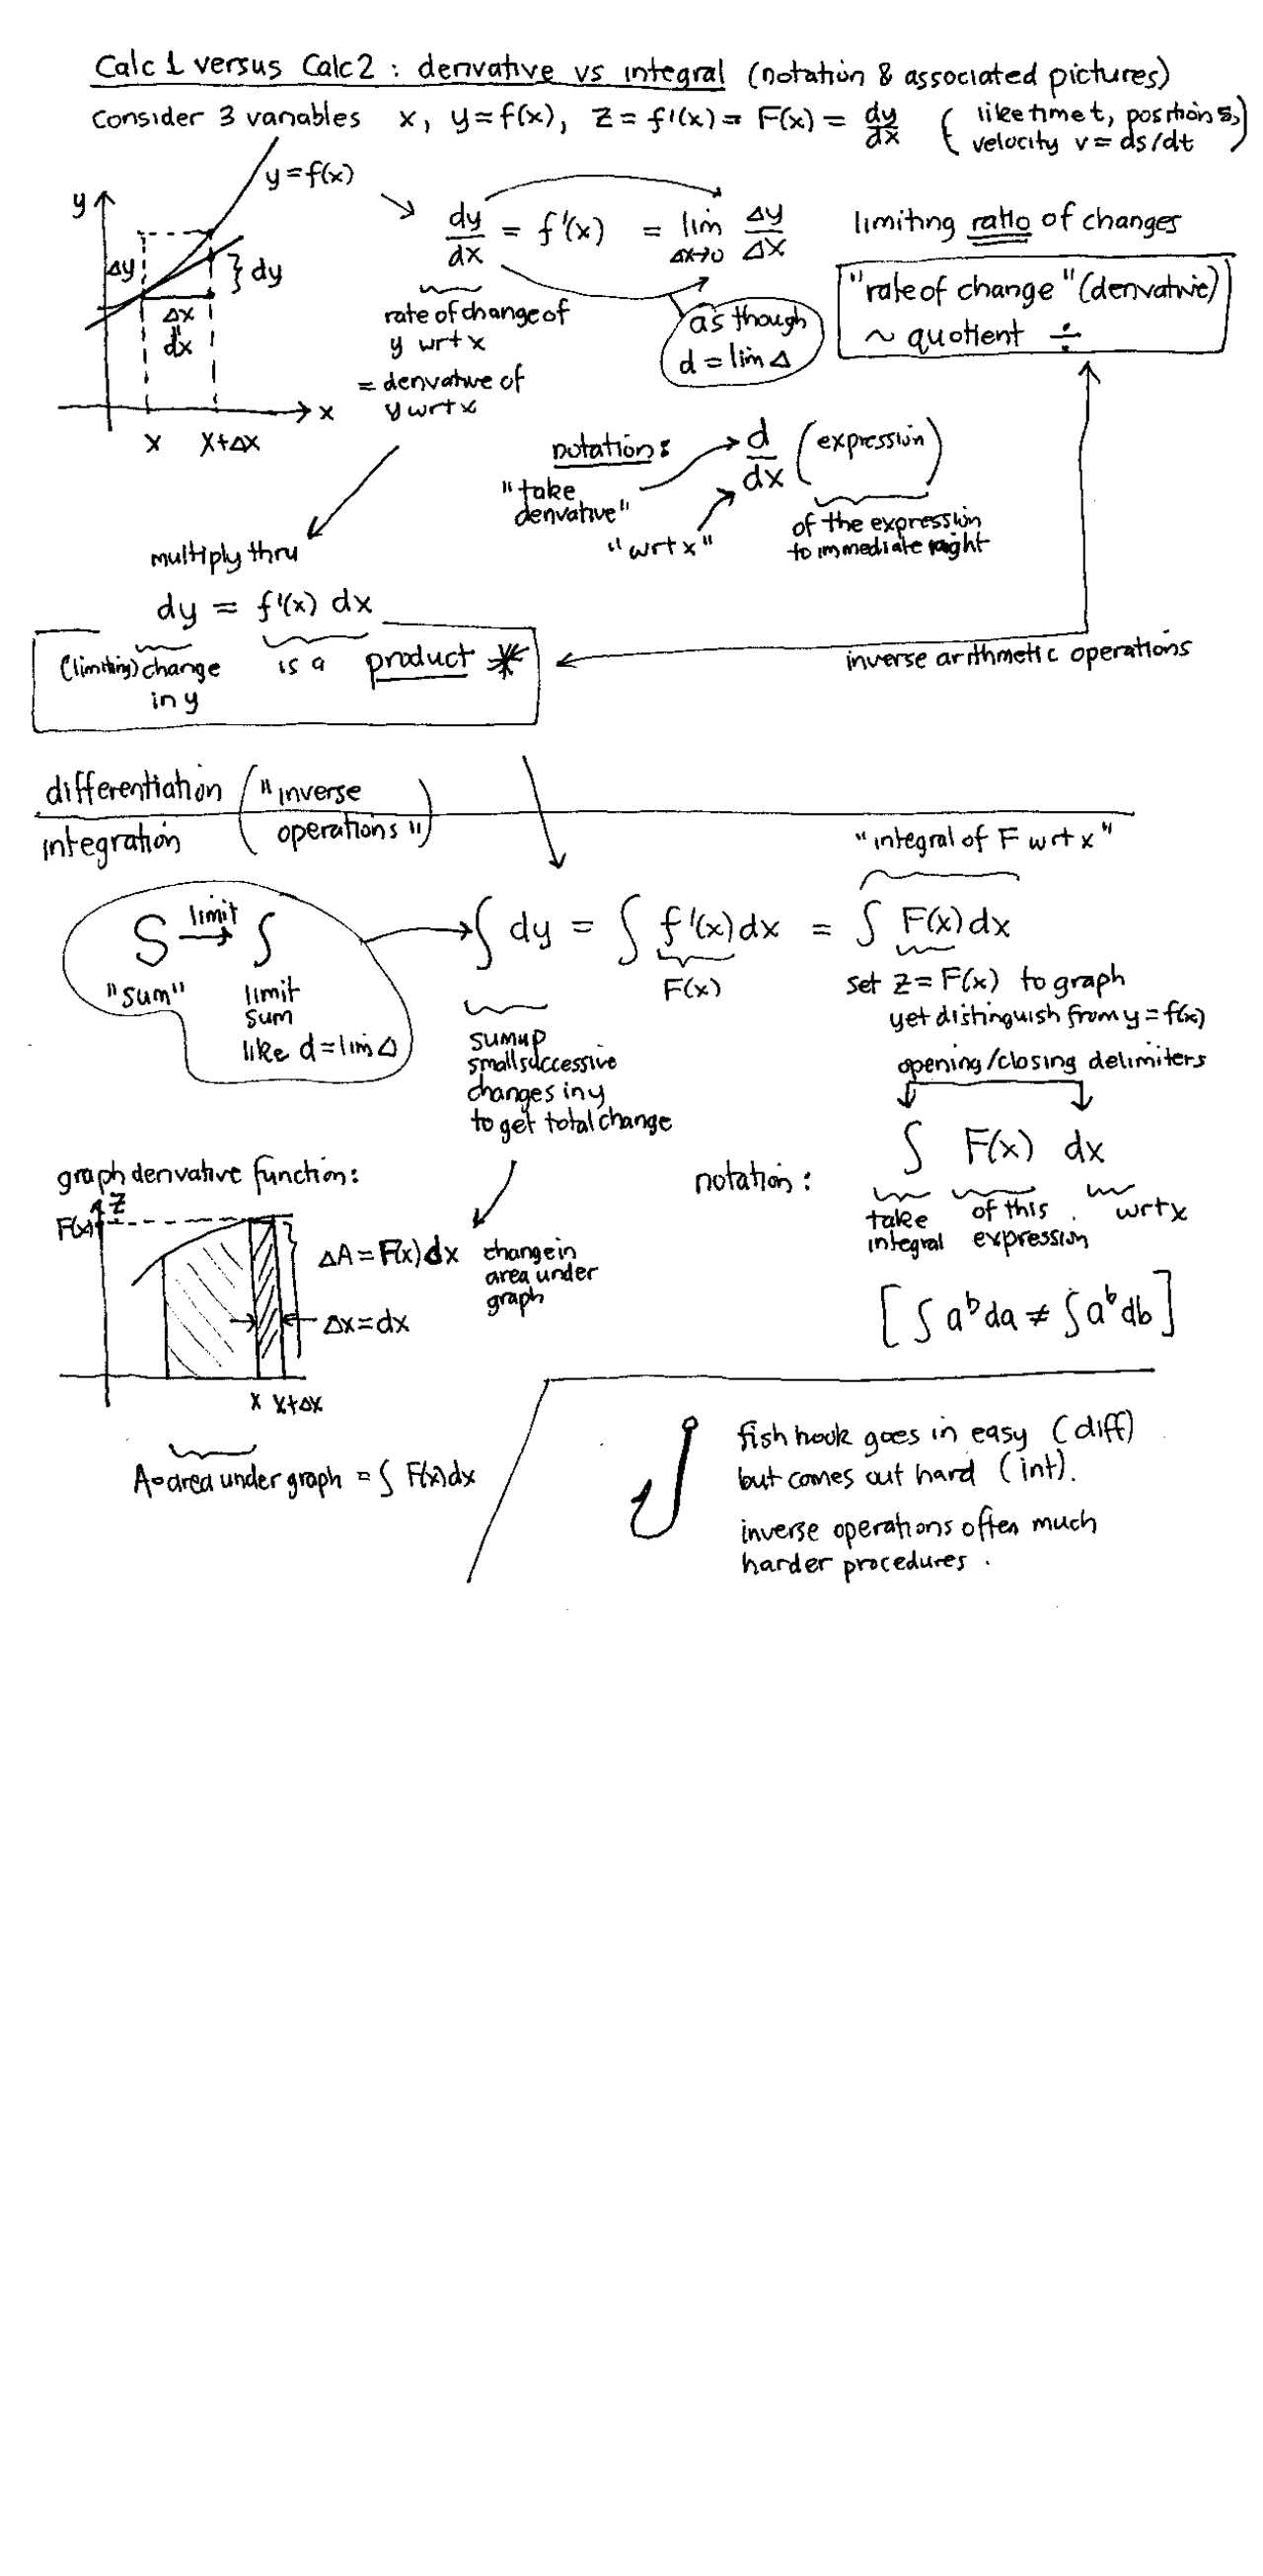 Calc 1 versus Calc 2 : derivative vs integral (notation & associated pictures)
Consider 3 variables x, y = f(x), z = f'(x) = F(x) = dy/dx (like time t, position s, velocity v = ds/dt)
y
y = f(x)
Δy
dy
Δx
"
dx
x
x
x+Δx
dy/dx = f'(x) = lim Δx→0 Δy/Δx
limiting ratio of changes
"rate of change" (derivative)
~ quotient ÷
rate of change of
y wrt x
= derivative of
y wrt x
as though
d = lim Δ
notation:
d/dx (expression)
"take
derivative"
"wrt x"
of the expression
to immediate right
multiply thru
dy = f'(x) dx
(limiting) change
in y
is a product *
inverse arithmetic operations
differentiation
integration
("inverse
operations")
"integral of F wrt x"
S limit→ ∫
"sum"
limit
sum
like d = lim Δ
∫ dy = ∫ f'(x) dx = ∫ F(x) dx
F(x)
set z = F(x) to graph
yet distinguish from y = f(x)
sum up
small successive
changes in y
to get total change
opening/closing delimiters
∫ F(x) dx
notation:
take
integral
of this
expression
wrt x
[∫ a^b da ≠ ∫ a^b db]
graph derivative function:
z
F(x)
ΔA = F(x) dx
change in
area under
graph
Δx = dx
x x+Δx
A = area under graph = ∫ F(x) dx
fish hook goes in easy (diff)
but comes out hard (int).
inverse operations often much
harder procedures.